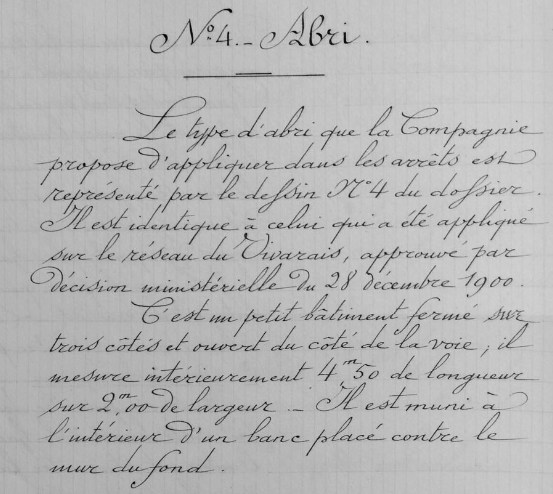 N° 4. — Abri.
Le type d'abri que la Compagnie
propose d'appliquer dans les arrêts est
représenté par le dessin N° 4 du dossier.
Il est identique à celui qui a été appliqué
sur le réseau du Vivarais, approuvé par
décision ministérielle du 28 décembre 1900.
C'est un petit bâtiment fermé sur
trois côtés et ouvert du côté de la voie ; il
mesure intérieurement 4ᵐ50 de longueur
sur 2ᵐ,00 de largeur. — Il est muni à
l'intérieur d'un banc placé contre le
mur du fond.